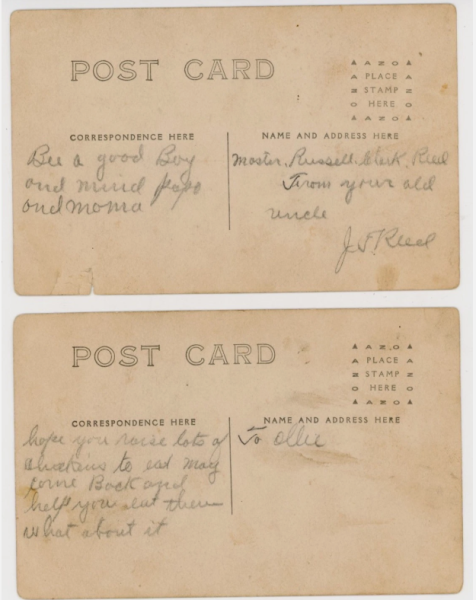 POST CARD
AZO
PLACE
STAMP
HERE
CORRESPONDENCE HERE
NAME AND ADDRESS HERE
Bee a good Boy
and mind papa
and moma
Master. Russell. Stark. Reed
From your old
uncle
J. S. Reed
POST CARD
AZO
PLACE
STAMP
HERE
CORRESPONDENCE HERE
NAME AND ADDRESS HERE
hope you raise lots of
chickins to eat may
come Back and
help you eat them
what about it
To Ollie